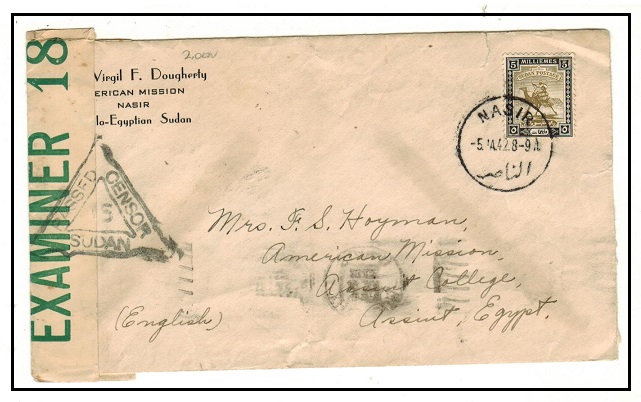 EXAMINER 18
2.00V
Virgil F. Dougherty
ERICAN MISSION
NASIR
lo-Egyptian Sudan
PASSED
CENSOR
S
SUDAN
5 MILLIEMES 5
SUDAN POSTAGE
NASIR
8-9A
الناصر
Mrs. F. S. Hoyman,
American Mission,
Assiut College,
Assiut, Egypt.
(English)